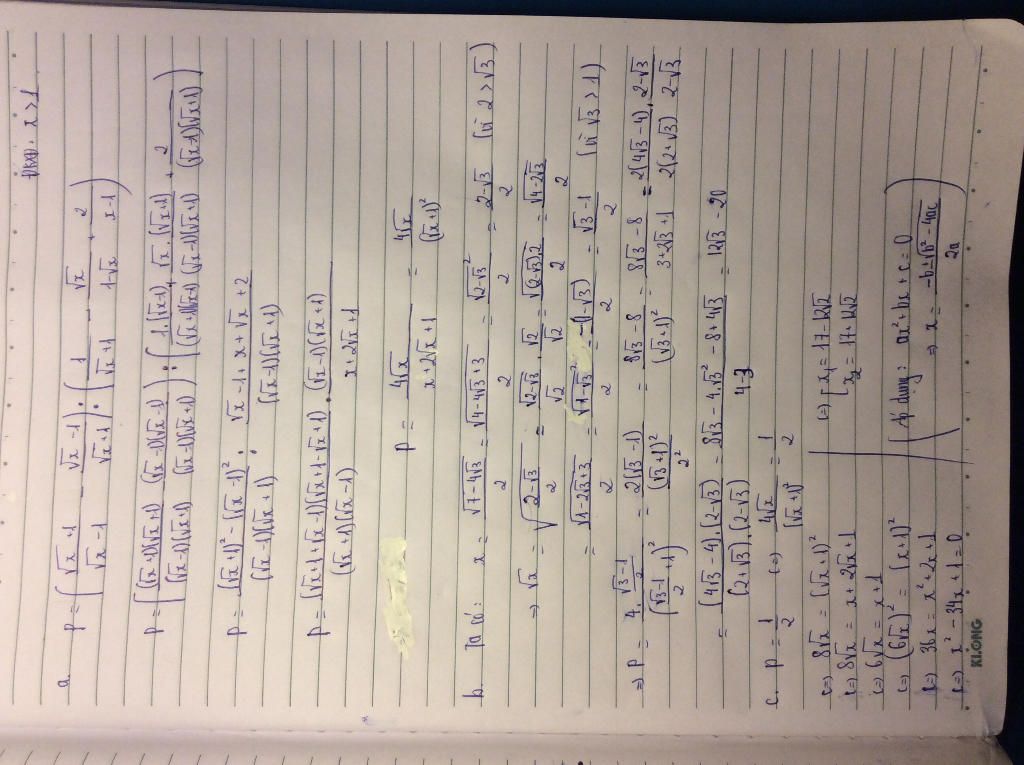 ĐKXĐ: x > 1
a. P = ( (√x + 1)/(√x − 1) − (√x − 1)/(√x + 1) ) : ( 1/(√x + 1) − √x/(1 − √x) + 2/(x − 1) )
P = ( (√x + 1)(√x + 1)/(√x − 1)(√x + 1) − (√x − 1)(√x − 1)/(√x − 1)(√x + 1) ) : ( 1.(√x − 1)/(√x + 1)(√x − 1) + √x.(√x + 1)/(√x − 1)(√x + 1) + 2/(√x − 1)(√x + 1) )
P = ((√x + 1)² − (√x − 1)²)/(√x − 1)(√x + 1) : (√x − 1 + x + √x + 2)/(√x − 1)(√x + 1)
P = (√x + 1 + √x − 1)(√x + 1 − √x + 1)/(√x + 1)(√x − 1) . (√x − 1)(√x + 1)/(x + 2√x + 1)
P = 4√x/(x + 2√x + 1) = 4√x/(√x + 1)²
b. Ta có: x = √(7 − 4√3)/2 = √(4 − 4√3 + 3)/2 = √(2 − √3)²/2 = (2 − √3)/2 (vì 2 > √3)
⇒ √x = √((2 − √3)/2) = √(2 − √3)/√2 . √2/√2 = √((2 − √3).2)/2 = √(4 − 2√3)/2
= √(1 − 2√3 + 3)/2 = √(1 − √3)²/2 = −(1 − √3)/2 = (√3 − 1)/2 (vì √3 > 1)
⇒ P = 4.((√3 − 1)/2)/((√3 − 1)/2 + 1)² = 2(√3 − 1)/((√3 + 1)²/2²) = (8√3 − 8)/(√3 + 1)² = (8√3 − 8)/(3 + 2√3 + 1) = 2(4√3 − 4)/2(2 + √3) . (2 − √3)/(2 − √3)
= (4√3 − 4).(2 − √3)/(2 + √3).(2 − √3) = (8√3 − 4.√3² − 8 + 4√3)/(4 − 3) = 12√3 − 20
c. P = 1/2 (=) 4√x/(√x + 1)² = 1/2
(=) 8√x = (√x + 1)²
(=) 8√x = x + 2√x + 1
(=) 6√x = x + 1
(=) (6√x)² = (x + 1)²
(=) 36x = x² + 2x + 1
(=) x² − 34x + 1 = 0
(=) [ x₁ = 17 − 12√2
x₂ = 17 + 12√2
( Áp dụng: ax² + bx + c = 0
⇒ x = (−b ± √(b² − 4ac))/2a )
KLONG